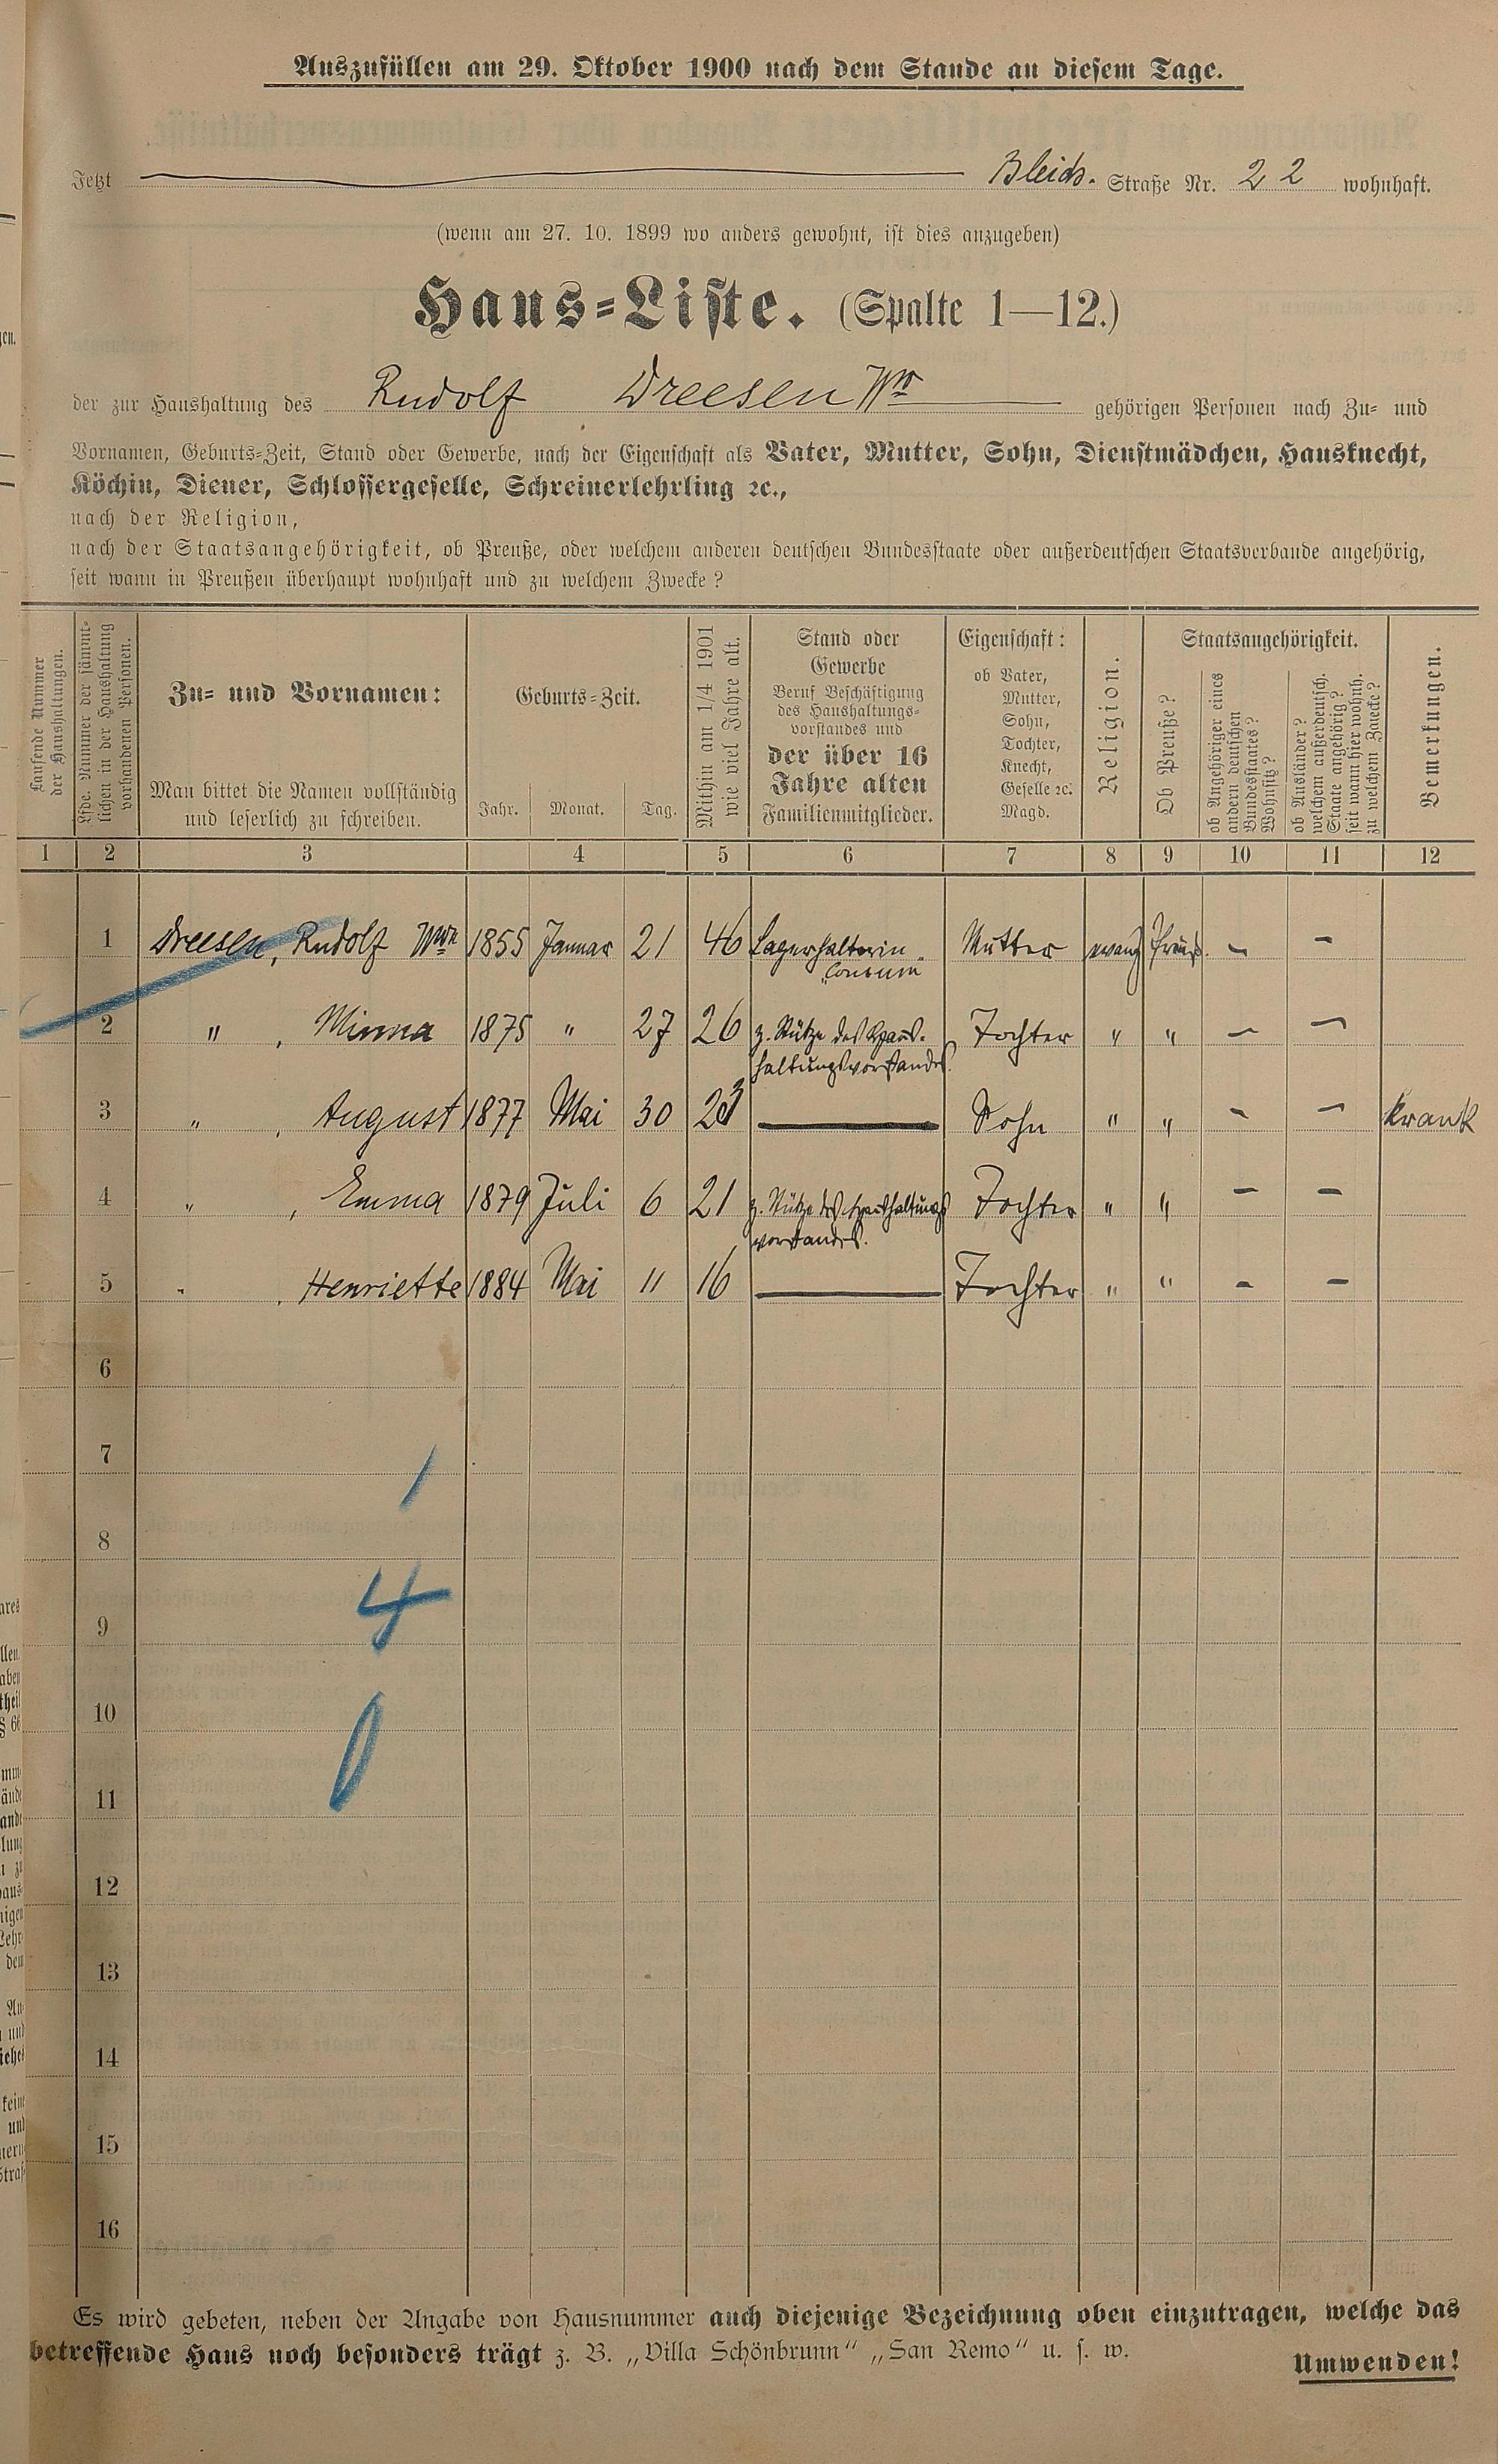 Auszufüllen am 29. Oktober 1900 nach dem Stande an diesem Tage.
Jetzt Bleich. Straße Nr. 22 wohnhaft.
(wenn am 27. 10. 1899 wo anders gewohnt, ist dies anzugeben)
Haus-Liste. (Spalte 1—12.)
der zur Haushaltung des Rudolf Dreesen Ww gehörigen Personen nach Zu- und
Vornamen, Geburts-Zeit, Stand oder Gewerbe, nach der Eigenschaft als Vater, Mutter, Sohn, Dienstmädchen, Hausknecht,
Köchin, Diener, Schlossergeselle, Schreinerlehrling ꝛc.,
nach der Religion,
nach der Staatsangehörigkeit, ob Preuße, oder welchem anderen deutschen Bundesstaate oder außerdeutschen Staatsverbande angehörig,
seit wann in Preußen überhaupt wohnhaft und zu welchem Zwecke?
Laufende Nummer
der Haushaltungen.
Lfde. Nummer der sämmt-
lichen in der Haushaltung
vorhandenen Personen.
Zu- und Vornamen:
Man bittet die Namen vollständig
und leserlich zu schreiben.
Geburts-Zeit.
Jahr. Monat. Tag.
Mithin am 1/4 1901
wie viel Jahre alt.
Stand oder
Gewerbe
Beruf Beschäftigung
des Haushaltungs-
vorstandes und
der über 16
Jahre alten
Familienmitglieder.
Eigenschaft:
ob Vater,
Mutter,
Sohn,
Tochter,
Knecht,
Geselle ꝛc.
Magd.
Religion.
Staatsangehörigkeit.
Ob Preuße?
ob Angehöriger eines
andern deutschen
Bundesstaates?
Wohnsitz?
ob Ausländer?
welchem außerdeutsch.
Staate angehörig?
seit wann hier wohnh.
zu welchem Zwecke?
Bemerkungen.
1 2 3 4 5 6 7 8 9 10 11 12
1 Dreesen, Rudolf Wwe 1855 Januar 21 46 Lagerhalterin Mutter evang Preuß. – –
Consum
2 " , Minna 1875 " 27 26 z. Stütze des Haus- Tochter " " – –
haltungsvorstandes.
3 " , August 1877 Mai 30 23 — Sohn " " – – krank
4 " , Emma 1879 Juli 6 21 z. Stütze des Haushaltungs Tochter " " – –
vorstandes.
5 " , Henriette 1884 Mai 11 16 — Tochter " " – –
6
7
1
8
9
4
10
0
11
12
13
14
15
16
Es wird gebeten, neben der Angabe von Hausnummer auch diejenige Bezeichnung oben einzutragen, welche das
betreffende Haus noch besonders trägt z. B. „Villa Schönbrunn“ „San Remo“ u. s. w.
Umwenden!